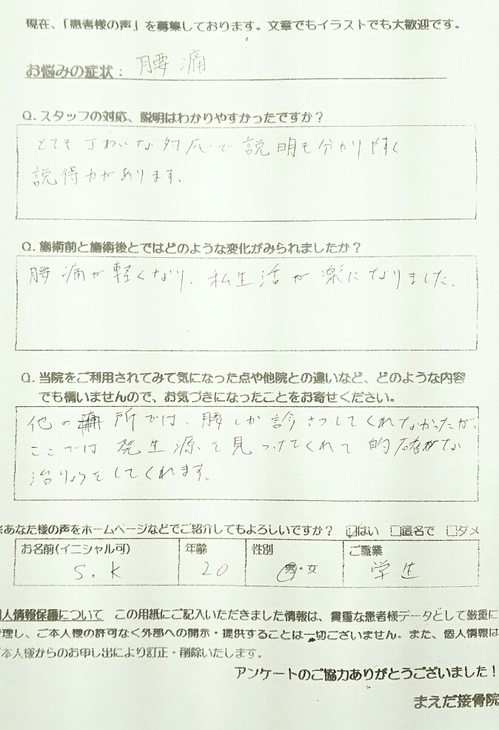 現在、「患者様の声」を募集しております。文章でもイラストでも大歓迎です。
お悩みの症状： 腰痛
Q. スタッフの対応、説明はわかりやすかったですか？
とても丁ねいな対応で説明も分かりやすく
説得力があります。
Q. 施術前と施術後とではどのような変化がみられましたか？
腰痛が軽くなり、私生活が楽になりました。
Q. 当院をご利用されてみて気になった点や他院との違いなど、どのような内容
でも構いませんので、お気づきになったことをお寄せください。
他の所では、腰しか診さつしてくれなかったが、
ここでは発生源を見つけてくれて的確な
治りょうをしてくれます。
あなた様の声をホームページなどでご紹介してもよろしいですか？ ☑はい □匿名で □ダメ
お名前(イニシャル可) 年齢 性別 ご職業
S.K 20 男・女 学生
個人情報保護について この用紙にご記入いただきました情報は、貴重な患者様データとして厳重に
管理し、ご本人様の許可なく外部への開示・提供することは一切ございません。また、個人情報は
ご本人様からのお申し出により訂正・削除いたします。
アンケートのご協力ありがとうございました！
まえだ接骨院